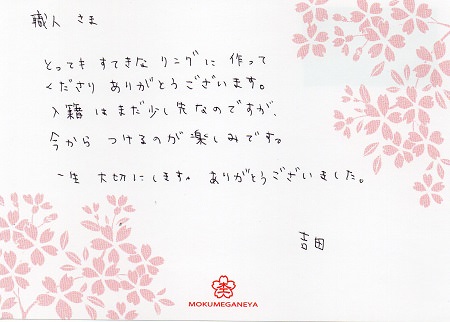 職人 さま
とっても すてきな リングに 作って
くださり ありがとうございます。
入籍 はまだ少し先なのですが、
今から つけるのが 楽しみです。
一生 大切にします。 ありがとうございました。
吉田
MOKUMEGANEYA